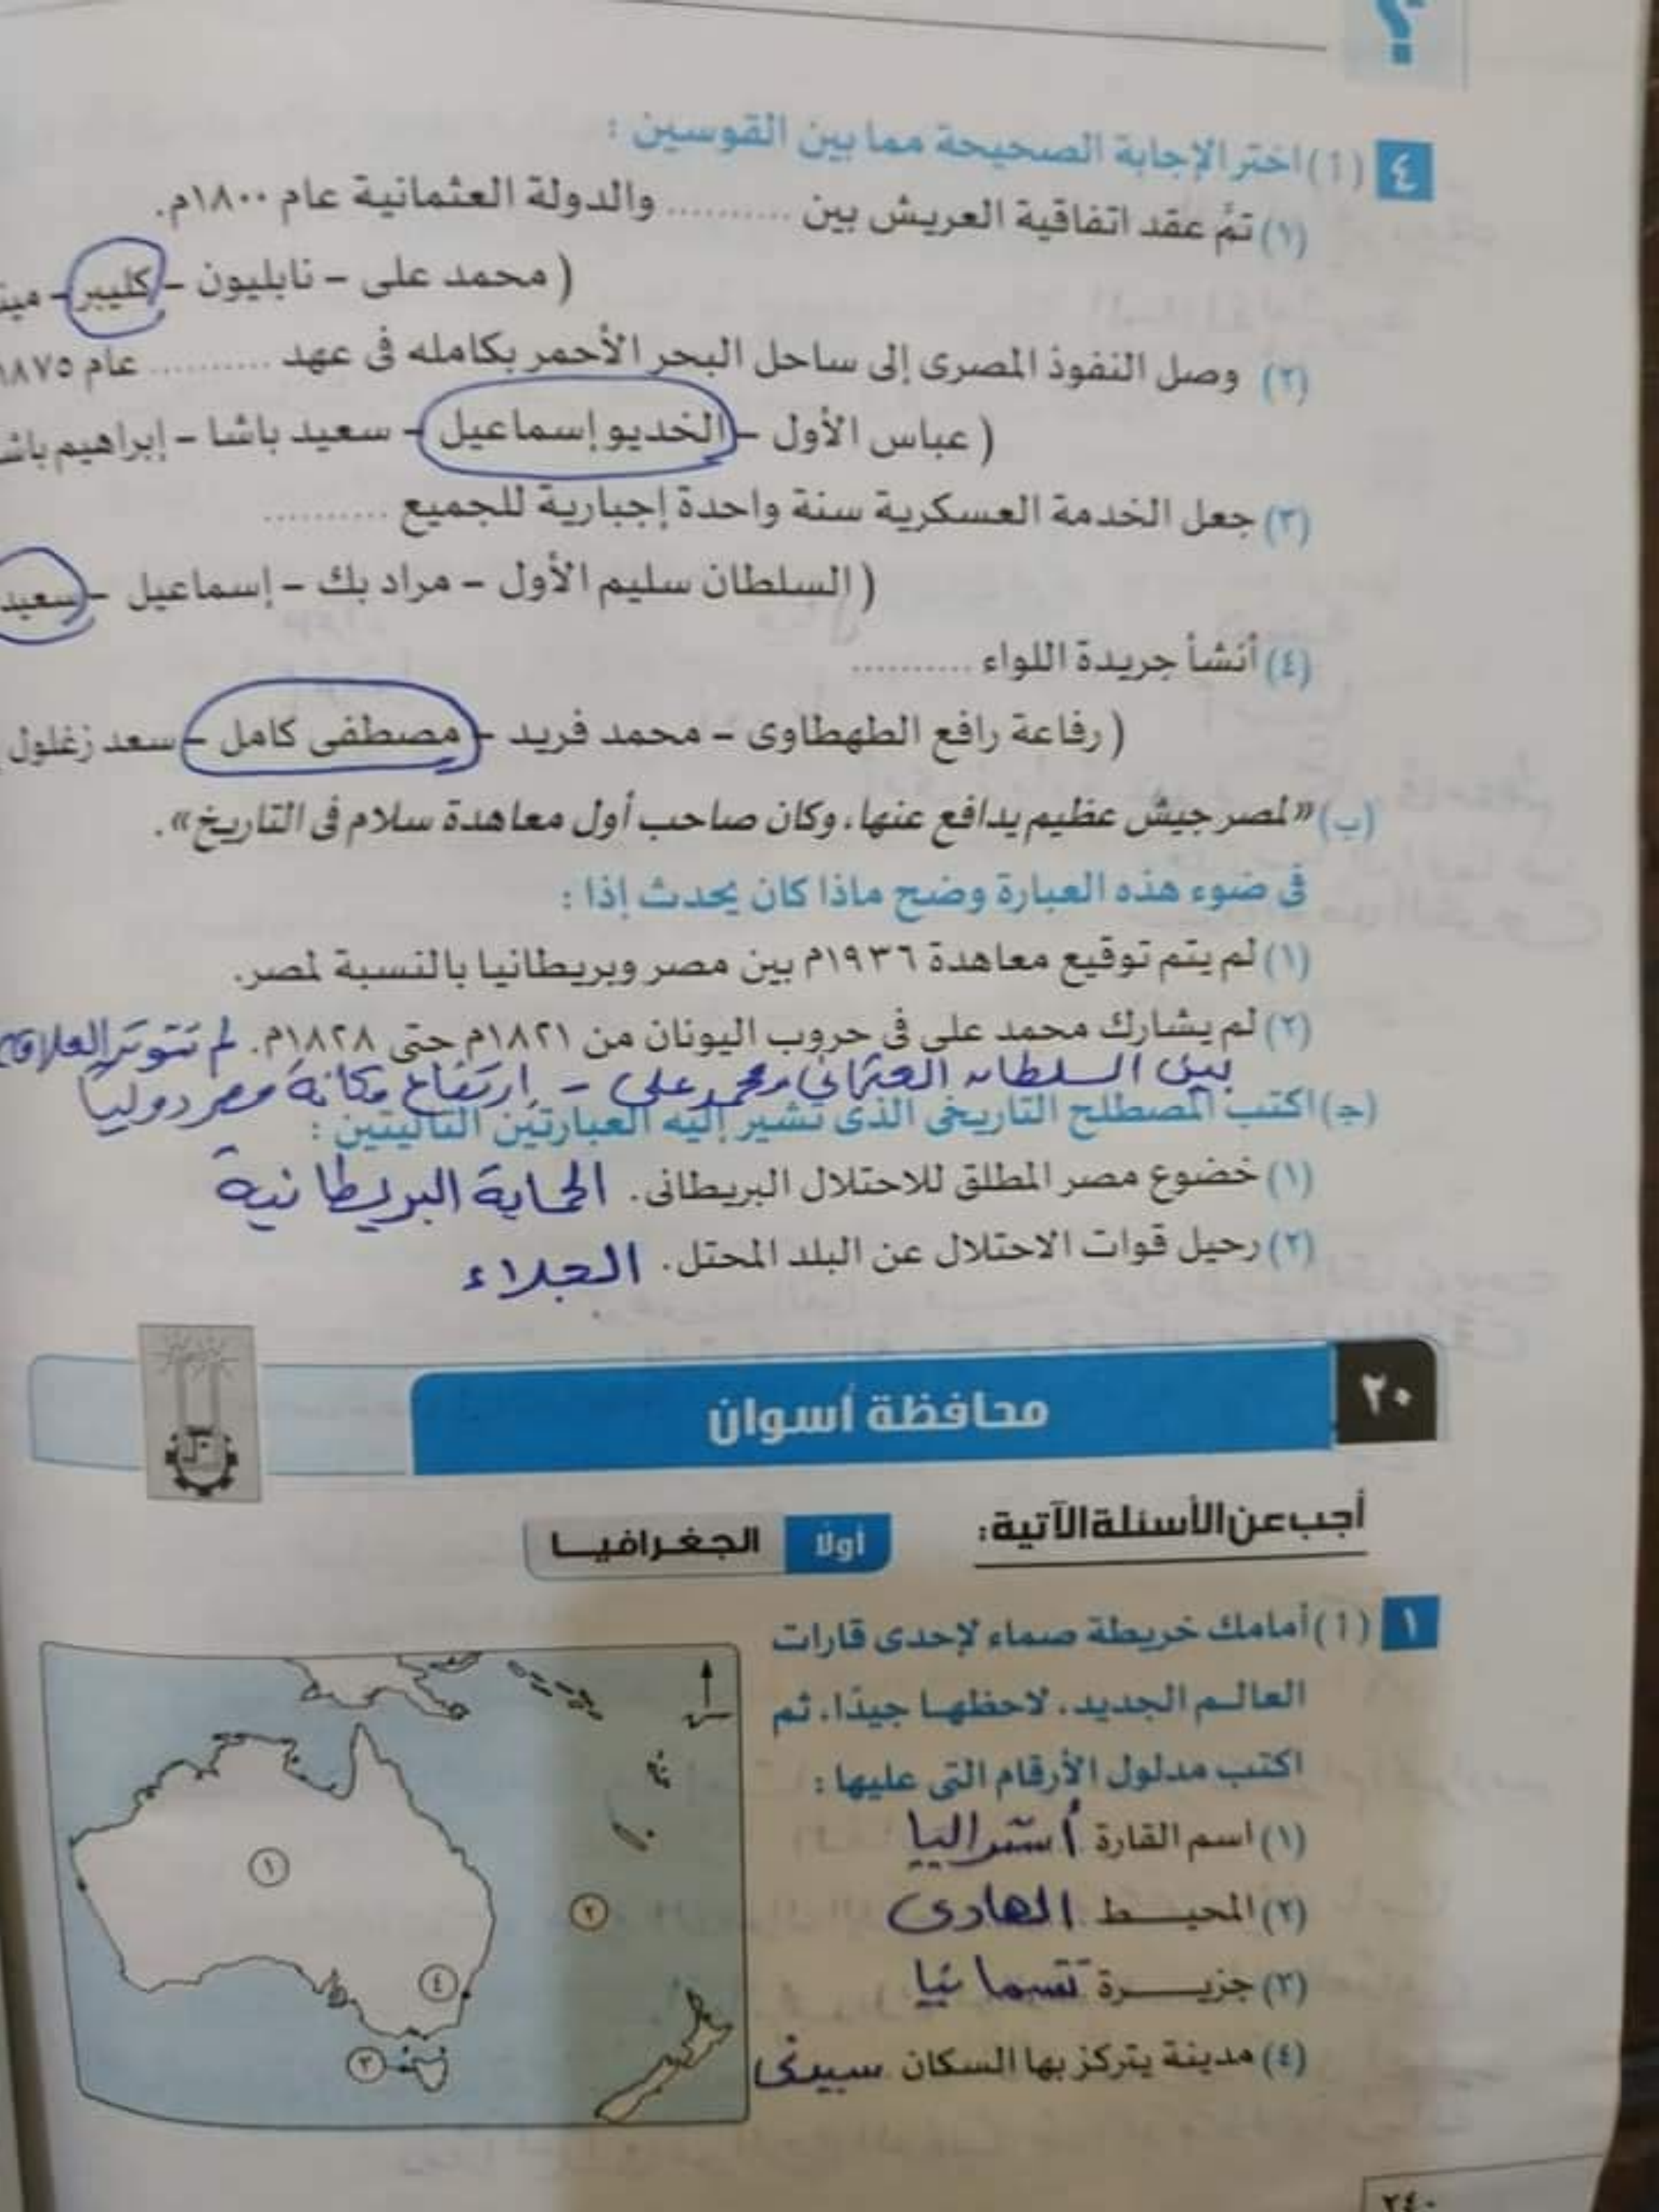 ؟
٤ (أ) اختر الإجابة الصحيحة مما بين القوسين :
(١) تمَّ عقد اتفاقية العريش بين .......... والدولة العثمانية عام ١٨٠٠م.
( محمد على – نابليون – كليبر –
(٢) وصل النفوذ المصرى إلى ساحل البحر الأحمر بكامله فى عهد .......... عام ١٨٧٥
( عباس الأول – الخديو إسماعيل – سعيد باشا – إبراهيم باشا
(٣) جعل الخدمة العسكرية سنة واحدة إجبارية للجميع ..........
( السلطان سليم الأول – مراد بك – إسماعيل – سعيد
(٤) أنشأ جريدة اللواء ..........
( رفاعة رافع الطهطاوى – محمد فريد – مصطفى كامل – سعد زغلول
(ب) «لمصر جيش عظيم يدافع عنها، وكان صاحب أول معاهدة سلام فى التاريخ».
فى ضوء هذه العبارة وضح ماذا كان يحدث إذا :
(١) لم يتم توقيع معاهدة ١٩٣٦م بين مصر وبريطانيا بالنسبة لمصر.
(٢) لم يشارك محمد على فى حروب اليونان من ١٨٢١م حتى ١٨٢٨م. لم تتوتر العلاقات
بين السلطان العثمانى ومحمد على – ارتفاع مكانة مصر دوليا
(ج) اكتب المصطلح التاريخى الذى تشير إليه العبارتين التاليتين :
(١) خضوع مصر المطلق للاحتلال البريطانى. الحماية البريطانية
(٢) رحيل قوات الاحتلال عن البلد المحتل. الجلاء
٢٠ محافظة أسوان
أجب عن الأسئلة الآتية:
أولًا الجغرافيا
١ (أ) أمامك خريطة صماء لإحدى قارات
العالم الجديد، لاحظها جيدًا، ثم
اكتب مدلول الأرقام التى عليها :
(١) اسم القارة أستراليا
(٢) المحيط الهادى
(٣) جزيرة تسمانيا
(٤) مدينة يتركز بها السكان سيدنى
١
٢
٣
٤
٢٤٠